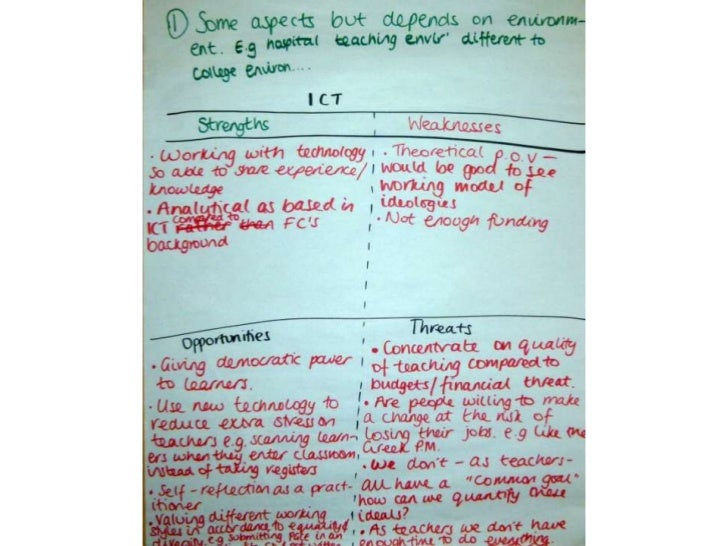 ① Some aspects but depends on environm-
ent. E.g hospital teaching envir' different to
College environ....
ICT
Strengths
· Working with technology
so able to share experience/
knowledge
· Analytical as based in
ICT rather than compared to FC's
background
Weaknesses
· Theoretical p.o.v –
would be good to see
working model of
ideologies
· Not enough funding
Opportunities
· Giving democratic power
to learners.
· Use new technology to
reduce extra stress on
teachers e.g. scanning learn-
ers when they enter classroom,
instead of taking registers
· Self-reflection as a pract-
itioner
· Valuing different working
styles in accordance to equality &
diversity e.g submitting PGCE in an
Threats
· Concentrate on quality
of teaching compared to
budgets/financial threat.
· Are people willing to make
a change at the risk of
losing their jobs. e.g like the
Greek P.M.
· We don't – as teachers–
all have a "common goal"
how can we quantify these
ideals?
· As teachers we don't have
enough time to do everything.